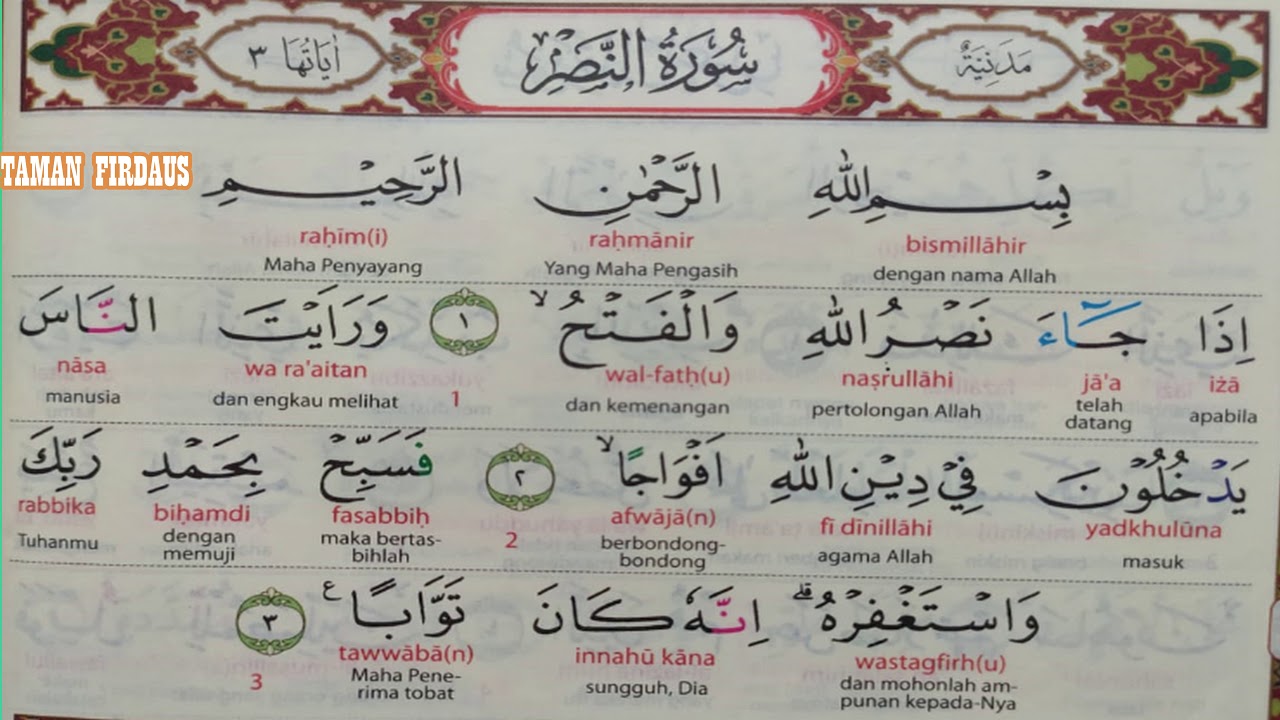 مَدَنِيَّةٌ سُوْرَةُ النَّصْرِ اٰيَاتُهَا ٣
TAMAN FIRDAUS
بِسْمِ اللّٰهِ الرَّحْمٰنِ الرَّحِيْمِ
bismillāhir raḥmānir raḥīm(i)
dengan nama Allah Yang Maha Pengasih Maha Penyayang
اِذَا جَاۤءَ نَصْرُ اللّٰهِ وَالْفَتْحُۙ ١ وَرَاَيْتَ النَّاسَ
iżā jā'a naṣrullāhi wal-fatḥ(u) 1 wa ra'aitan nāsa
apabila telah datang pertolongan Allah dan kemenangan dan engkau melihat manusia
يَدْخُلُوْنَ فِيْ دِيْنِ اللّٰهِ اَفْوَاجًاۙ ٢ فَسَبِّحْ بِحَمْدِ رَبِّكَ
yadkhulūna fī dīnillāhi afwājā(n) 2 fasabbiḥ biḥamdi rabbika
masuk agama Allah berbondong-bondong maka bertas-bihlah dengan memuji Tuhanmu
وَاسْتَغْفِرْهُۗ اِنَّهٗ كَانَ تَوَّابًا ࣖ ٣
wastagfirh(u) innahū kāna tawwābā(n) 3
dan mohonlah am-punan kepada-Nya sungguh, Dia Maha Pene-rima tobat